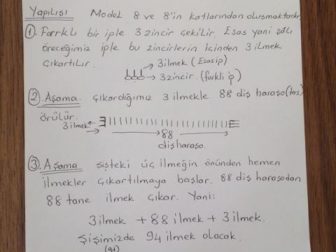 Yapılışı Model 8 ve 8'in katlarından oluşmaktadır.
① Farklı bir iple 3 zincir çekilir. Esas yani
öreceğimiz iple bu zincirlerin içinden 3 ilmek
çıkartılır.
3 ilmek (Esas ip)
3 zincir (farklı ip)
② Aşama Çıkardığımız 3 ilmekle 88 diş haraşo
örülür.
3 ilmek
88
diş haraşo.
③ Aşama Şişteki üç ilmeğin önünden hemen
ilmekler çıkartılmaya başlar. 88 diş haraşodan
88 tane ilmek çıkar. Yani:
3 ilmek + 88 ilmek + 3 ilmek.
Şişimizde 94 ilmek olacak.